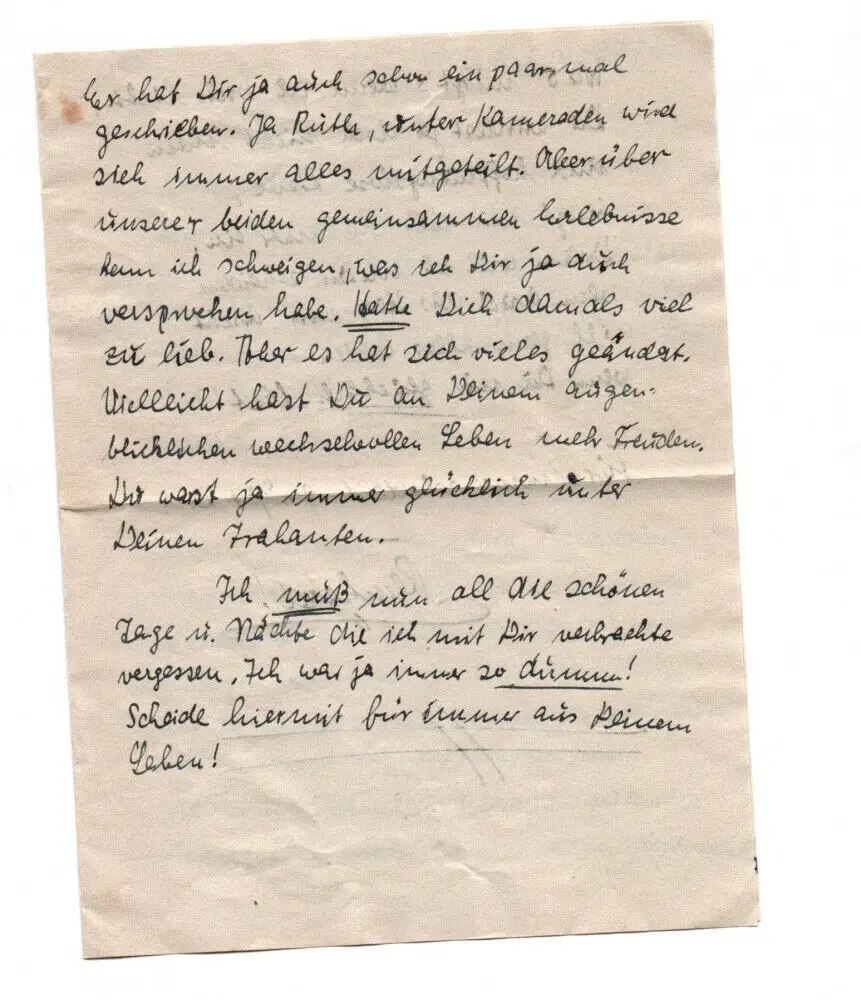 Er hat Dir ja auch schon ein paarmal
geschrieben. Ja Ruth, unter Kameraden wird
sich immer alles mitgeteilt. Aber über
unserer beiden gemeinsammen Erlebnisse
kann ich schweigen, was ich Dir ja auch
versprochen habe. Hatte Dich damals viel
zu lieb. Aber es hat sich vieles geändert.
Vielleicht hast Du an Deinem augen-
blicklichen wechselvollen Leben mehr Freuden.
Du warst ja immer glücklich unter
Deinen Trabanten.-
Ich muß nun all die schönen
Tage u. Nächte die ich mit Dir verbrachte
vergessen. Ich war ja immer so dumm!
Scheide hiermit für immer aus Deinem
Leben!